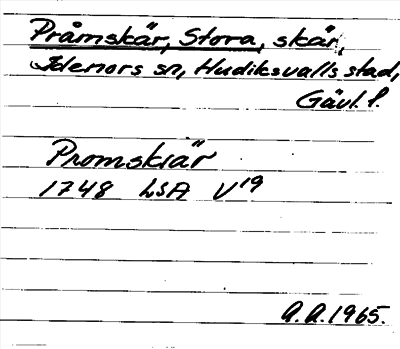 Pråmskär, Stora, skär,
Idenors sn, Hudiksvalls stad,
Gävl. l.
Promskiär
1748 LSA V¹⁹
A.A. 1965.